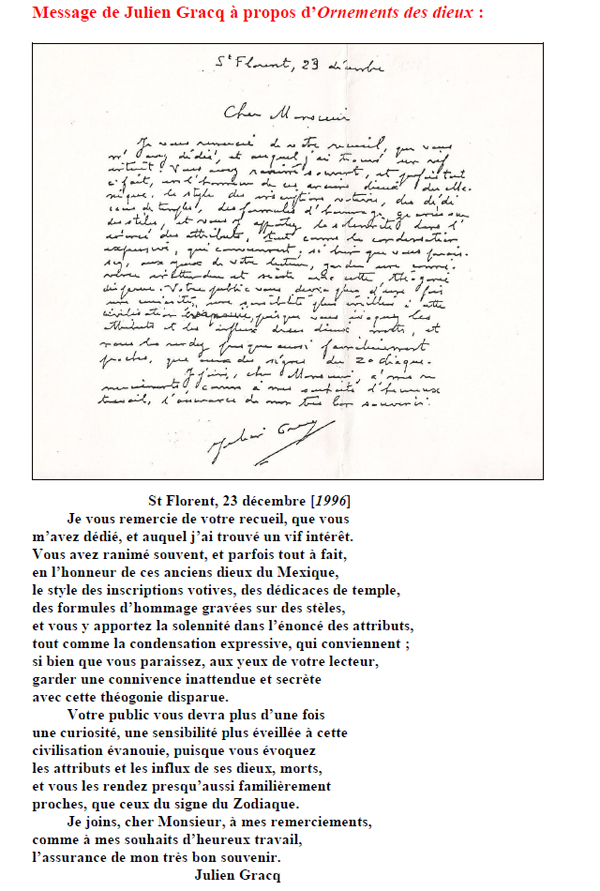 Message de Julien Gracq à propos d’Ornements des dieux :
St Florent, 23 décembre
Cher Monsieur
Je vous remercie de votre recueil, que vous
m'avez dédié, et auquel j'ai trouvé un vif
intérêt. Vous avez ranimé souvent, et parfois tout
à fait, en l'honneur de ces anciens dieux du Me-
xique, le style des inscriptions votives, des dédi-
caces de temples, des formules d'hommage gravées sur
des stèles, et vous y apportez la solennité dans l'é-
noncé des attributs, tout comme la condensation
expressive, qui conviennent, si bien que vous parais-
sez, aux yeux de votre lecteur, garder une conni-
vence inattendue et secrète avec cette théogonie
disparue. Votre public vous devra plus d'une fois
une curiosité, une sensibilité plus éveillée à cette
civilisation évanouie, puisque vous évoquez les
attributs et les influx de ses dieux morts, et
vous les rendez presque aussi familièrement
proches, que ceux des signes du Zodiaque.
Je joins, cher Monsieur, à mes re-
merciements, comme à mes souhaits d'heureux
travail, l'assurance de mon très bon souvenir.
Julien Gracq
St Florent, 23 décembre [1996]
Je vous remercie de votre recueil, que vous
m’avez dédié, et auquel j’ai trouvé un vif intérêt.
Vous avez ranimé souvent, et parfois tout à fait,
en l’honneur de ces anciens dieux du Mexique,
le style des inscriptions votives, des dédicaces de temple,
des formules d’hommage gravées sur des stèles,
et vous y apportez la solennité dans l’énoncé des attributs,
tout comme la condensation expressive, qui conviennent ;
si bien que vous paraissez, aux yeux de votre lecteur,
garder une connivence inattendue et secrète
avec cette théogonie disparue.
Votre public vous devra plus d’une fois
une curiosité, une sensibilité plus éveillée à cette
civilisation évanouie, puisque vous évoquez
les attributs et les influx de ses dieux, morts,
et vous les rendez presqu’aussi familièrement
proches, que ceux du signe du Zodiaque.
Je joins, cher Monsieur, à mes remerciements,
comme à mes souhaits d’heureux travail,
l’assurance de mon très bon souvenir.
Julien Gracq